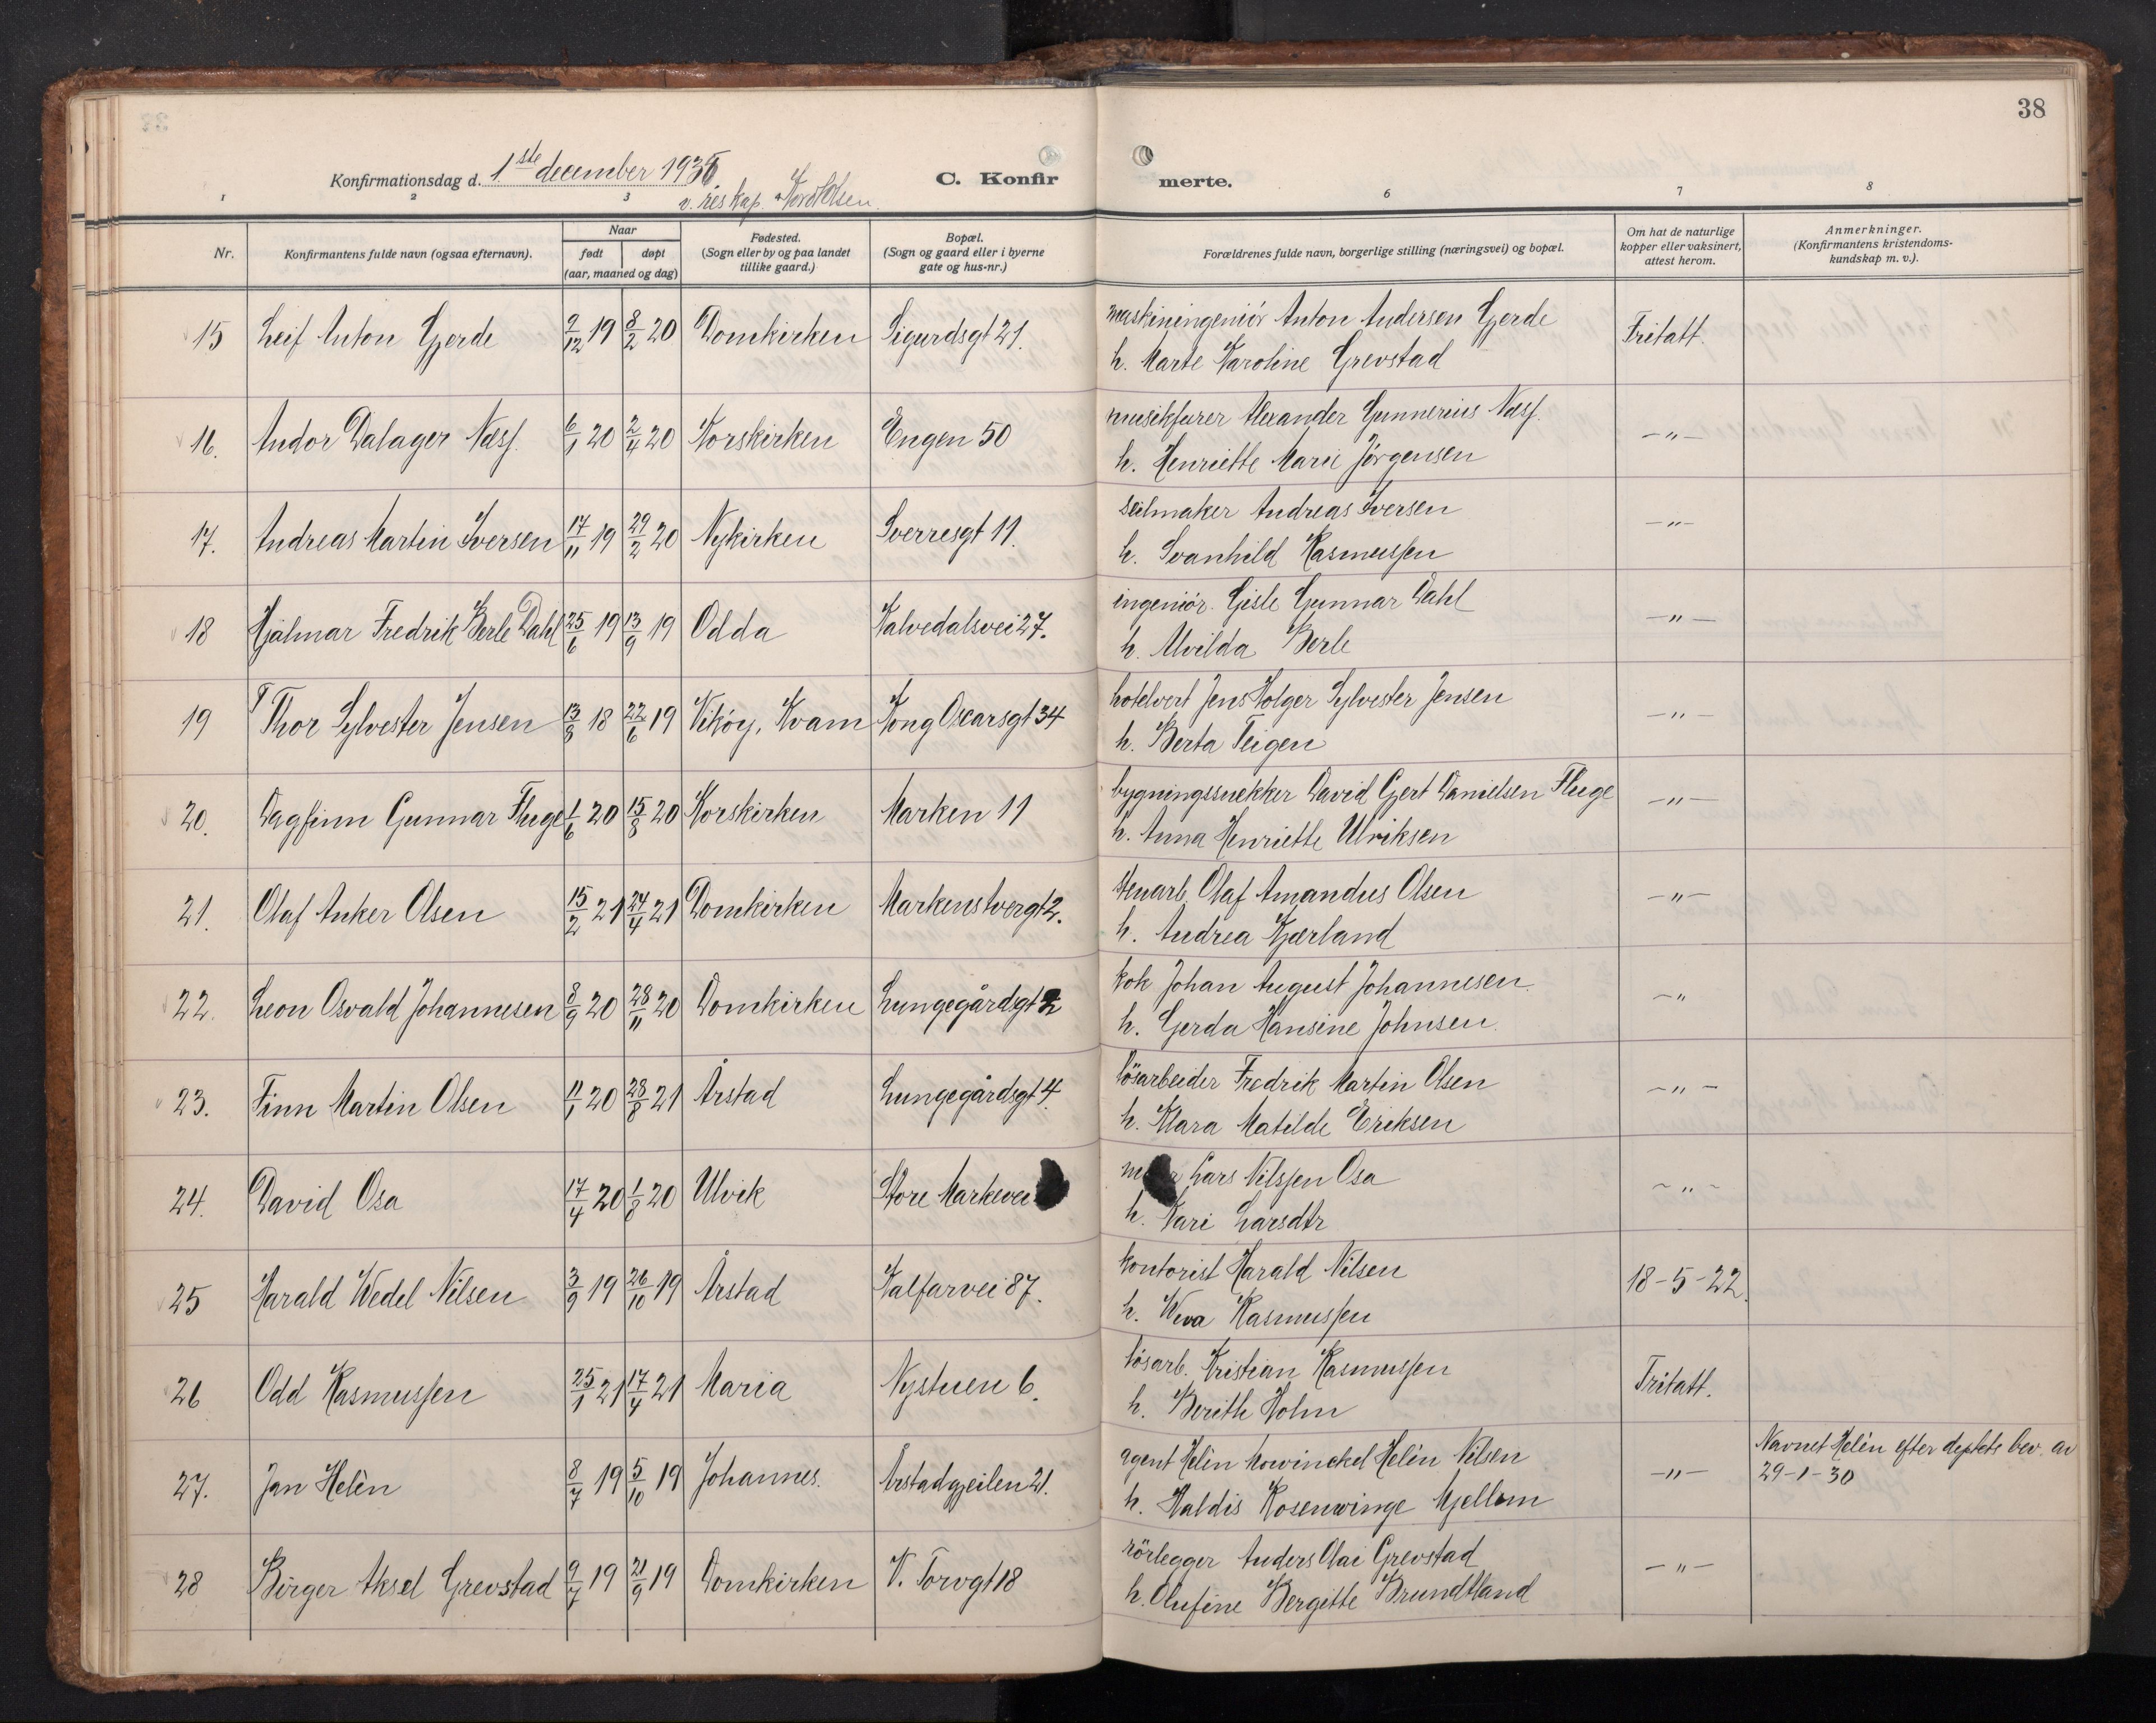 38
Konfirmationsdag d. 1ste december 1935
v. res kap. Nordolsen.
C. Konfir merte.
1 2 3 6 7 8
Nr.
Konfirmantens fulde navn (ogsaa efternavn).
Naar
født døpt
(aar, maaned og dag)
Fødested.
(Sogn eller by og paa landet
tillike gaard.)
Bopæl.
(Sogn og gaard eller i byerne
gate og hus-nr.)
Forældrenes fulde navn, borgerlige stilling (næringsvei) og bopæl.
Om hat de naturlige
kopper eller vaksinert,
attest herom.
Anmerkninger.
(Konfirmantens kristendoms-
kundskap m. v.).
15 Leif Anton Gjerde 9/12 19 8/2 20 Domkirken Sigurdsgt 21. maskiningeniør Anton Andersen Gjerde Fritatt.
h. Marte Karoline Grevstad
16. Andor Dalager Næss. 6/1 20 2/4 20 Korskirken Engen 50 musikfører Alexander Gunnerius Næss. -"-
h. Henriette Marie Jørgensen
17. Andreas Martin Iversen 17/11 19 29/2 20 Nykirken Sverresgt 11. seilmaker Andreas Iversen -"-
h. Svanhild Rasmussen
18 Hjalmar Fredrik Berle Dahl 25/6 19 13/9 19 Odda Kalvedalsvei 27. ingeniør. Gisle Gunnar Dahl -"-
h. Alvilda Berle
19 Thor Sylvester Jensen 13/8 18 22/6 19 Vikøy, Kvam Kong Oscarsgt 34 hotelvert Jens Holger Sylvester Jensen -"-
h. Berta Teigen
20. Dagfinn Gunnar Fluge 1/6 20 15/8 20 Korskirken Marken 11 bygningssnekker David Gert Danielsen Fluge -"-
h. Anna Henriette Ulriksen
21. Olaf Anker Olsen 15/2 21 24/4 21 Domkirken Markenstvergt 2. stenarb. Olaf Amandus Olsen -"-
h. Andrea Kjærland
22. Leon Osvald Johannesen 8/9 20 28/11 20 Domkirken Lungegårdsgt 2 kok Johan August Johannesen. -"
h. Gerda Hansine Johnsen.
23. Finn Martin Olsen 11/1 20 28/8 21 Årstad Lungegårdsgt 4. løsarbeider Fredrik Martin Olsen -"-
h. Klara Matilde Eriksen
24. David Osa 17/4 20 1/8 20 Ulvik Store Markevei Lars Nilssen Osa -"-
h. Kari Larsdtr
25 Harald Wedel Nilsen 3/9 19 26/10 19 Årstad Kalfarvei 87. kontorist Harald Nilsen 18-5-22.
h. Weva Rasmussen
26 Odd Rasmussen 25/1 21 17/4 21 Maria Nystuen 6. løsarb. Kristian Rasmussen Fritatt.
h. Berith Holm
27. Jan Helèn 8/7 19 5/10 19 Johannes. Årstadgjeilen 21. agent Helèn Mowinckel Helèn Nilsen -"- Navnet Helèn efter dep bev. av
h. Haldis Rosenvinge Mjellem 29-1-30
28 Birger Aksel Grevstad 9/7 19 21/9 19 Domkirken V. Torvgt 18 rørlegger Anders Olai Grevstad -"-
h. Olufine Bergitte Brundtland